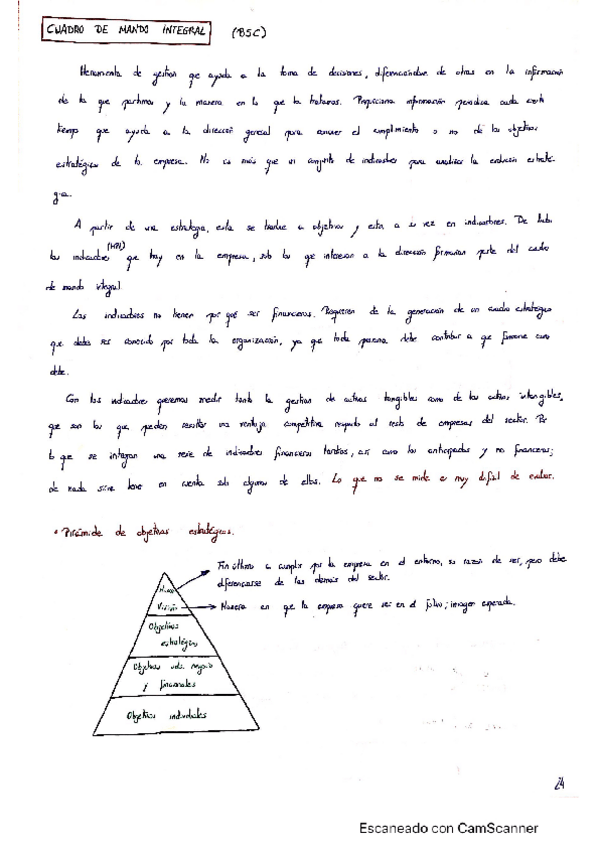 CUADRO DE MANDO INTEGRAL (BSC)
Herramienta de gestión que ayuda a la toma de decisiones, diferenciándose de otras en la información
de la que partimos y la manera en la que la tratamos. Proporciona información periódica cada cierto
tiempo que ayuda a la dirección general para conocer el cumplimiento o no de los objetivos
estratégicos de la empresa. No es más que un conjunto de indicadores para analizar la evolución estraté-
gia.
A partir de una estrategia, esta se traduce a objetivos y estos a su vez en indicadores. De todos
los indicadores (KPI) que hay en la empresa, solo los que interesan a la dirección formarían parte del cuadro
de mando integral.
Los indicadores no tienen por qué ser financieros. Requieren de la generación de un cuadro estratégico
que debe ser conocido por toda la organización, ya que toda persona debe contribuir a que funcione como
debe.
Con los indicadores queremos medir tanto la gestión de activos tangibles como de los activos intangibles,
que son los que pueden resultar una ventaja competitiva respecto al resto de empresas del sector. Por
lo que se integran una serie de indicadores financieros tardíos, así como los anticipados y no financieros;
de nada sirve tener en cuenta solo algunos de ellos. Lo que no se mide es muy difícil de evaluar.
• Pirámide de objetivos estratégicos.
Fin último a cumplir por la empresa en el entorno, su razón de ser, pero debe
diferenciarse de las demás del sector.
Misión
Visión
Manera en que la empresa quiere ser en el futuro; imagen esperada.
Objetivos
estratégicos
Objetivos uds. negocio
y funcionales
Objetivos individuales
24
Escaneado con CamScanner